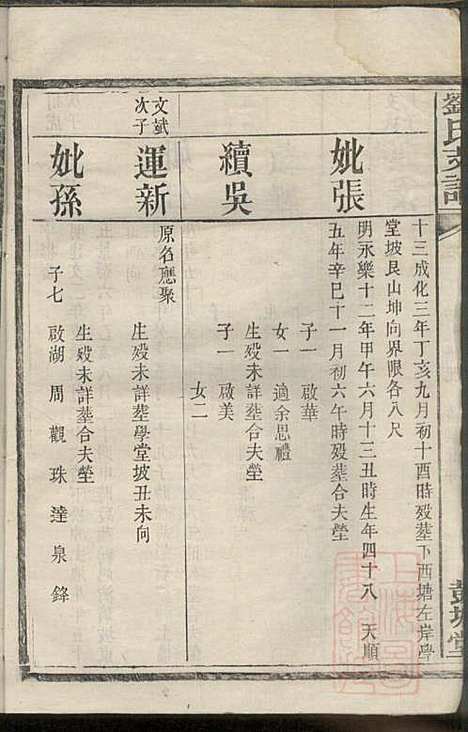 劉氏支譜
十三成化三年丁亥九月初十酉時殁塟下西塘左岸學
堂坡艮山坤向界眼各八尺
妣張
明永樂十二年甲午六月十三丑時生年四十八 天順
五年辛巳十一月初六午時殁塟合夫塋
子一 啟華
女一 適余思禮
續吳
生殁未詳塟合夫塋
子一 啟美
女二
文斌
次子
運新
原名應聚
生殁未詳塟學堂坡丑未向
妣孫
生殁未詳塟合夫塋
子七 啟湖 周 觀 珠 達 泉 鋒